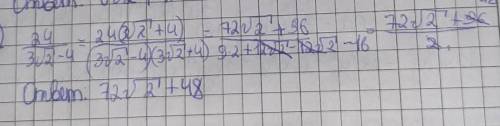 24/(3√2-4) = 24(3√2+4)/((3√2-4)(3√2+4)) = (72√2+96)/(9·2+12√2-12√2-16) = (72√2+96)/2
Ответ: 72√2+48